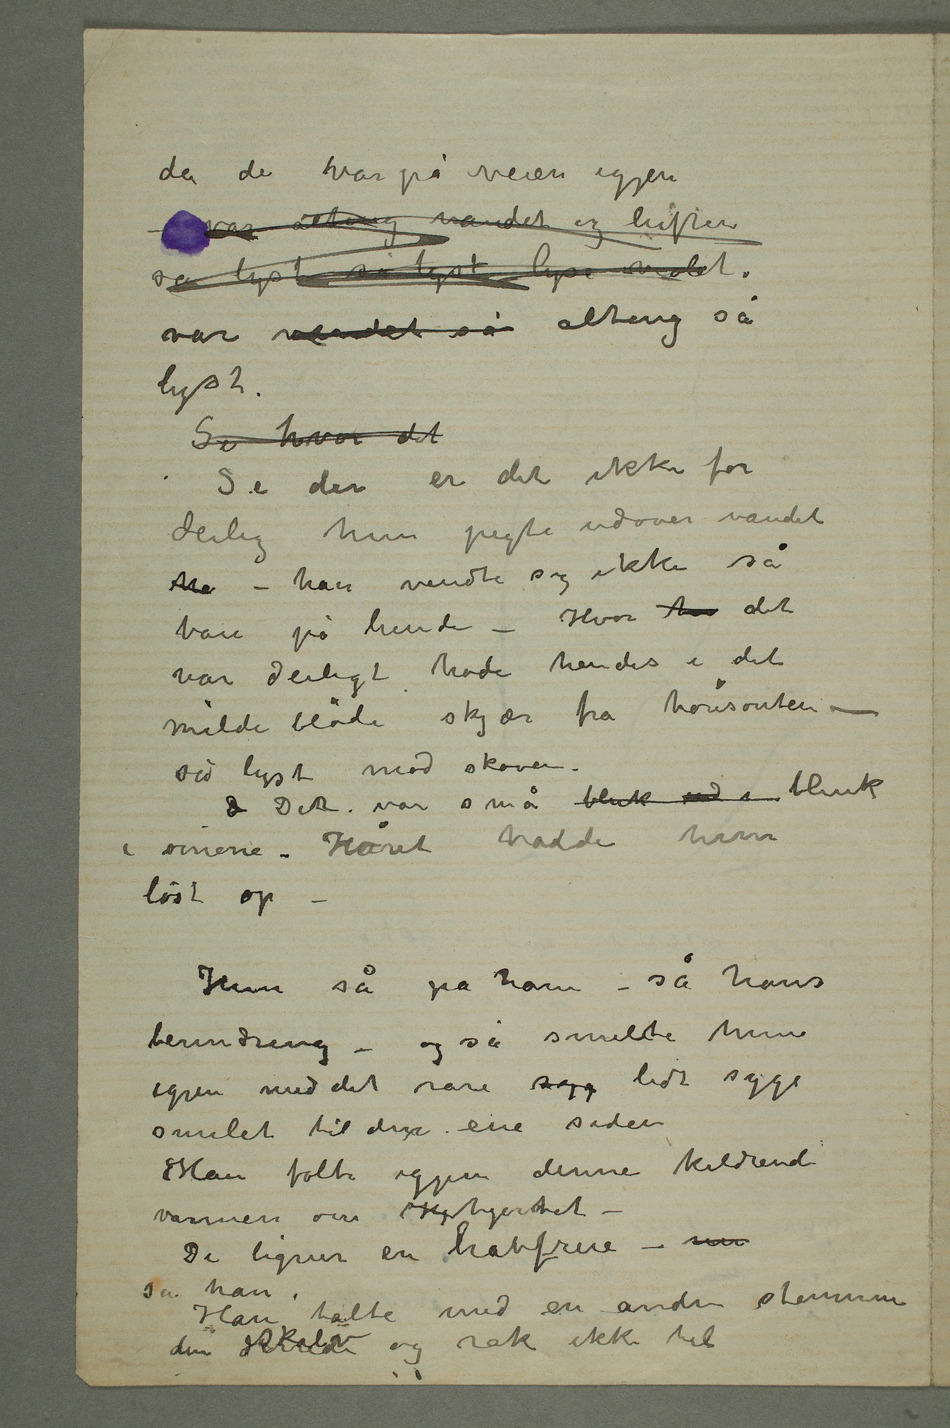 da de var på veien igjen
– var alting vandet og luften
så lyst så lyst lyse violet.
var vandet så alting så
lyst.
Se hvor det
Se der er det ikke for
deilig hun pegte udover vandet
ha – han vendte sig ikke så
bare på hende – Hvor ha det
var deiligt hode hendes i det
milde bløde skjær fra horisonten –
så lyst mod skoven.
D Det var små blink ud i blink
i øinene – Håret hadde hun
løst op –
Hun så på ham – så hans
beundring – og så smilte hun
igjen med det rare syg lidt syge
smilet til den ene siden
Han følte igjen denne kildrende
varmen om Hj hjertet –
De ligner en havfrue – nu
sa han.
Han talte med en anden stemme
den skalv og rak ikke til